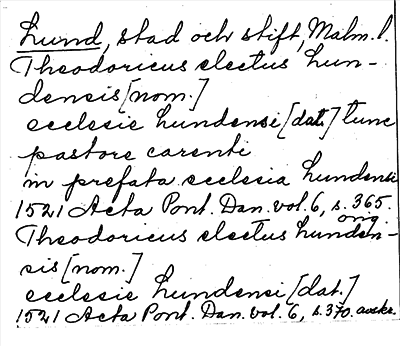 Lund, stad och stift, Malm. l.
Theodoricus electus lun-
densis [nom.]
ecclesie lundensi [dat.] tunc
pastore carenti
in prefata ecclesia lundensi
1521 Acta Pont. Dan. vol. 6, s. 365.
orig.
Theodoricus electus lunden-
sis [nom.]
ecclesie lundensi [dat.]
1521 Acta Pont. Dan. vol. 6, s. 370. avskr.